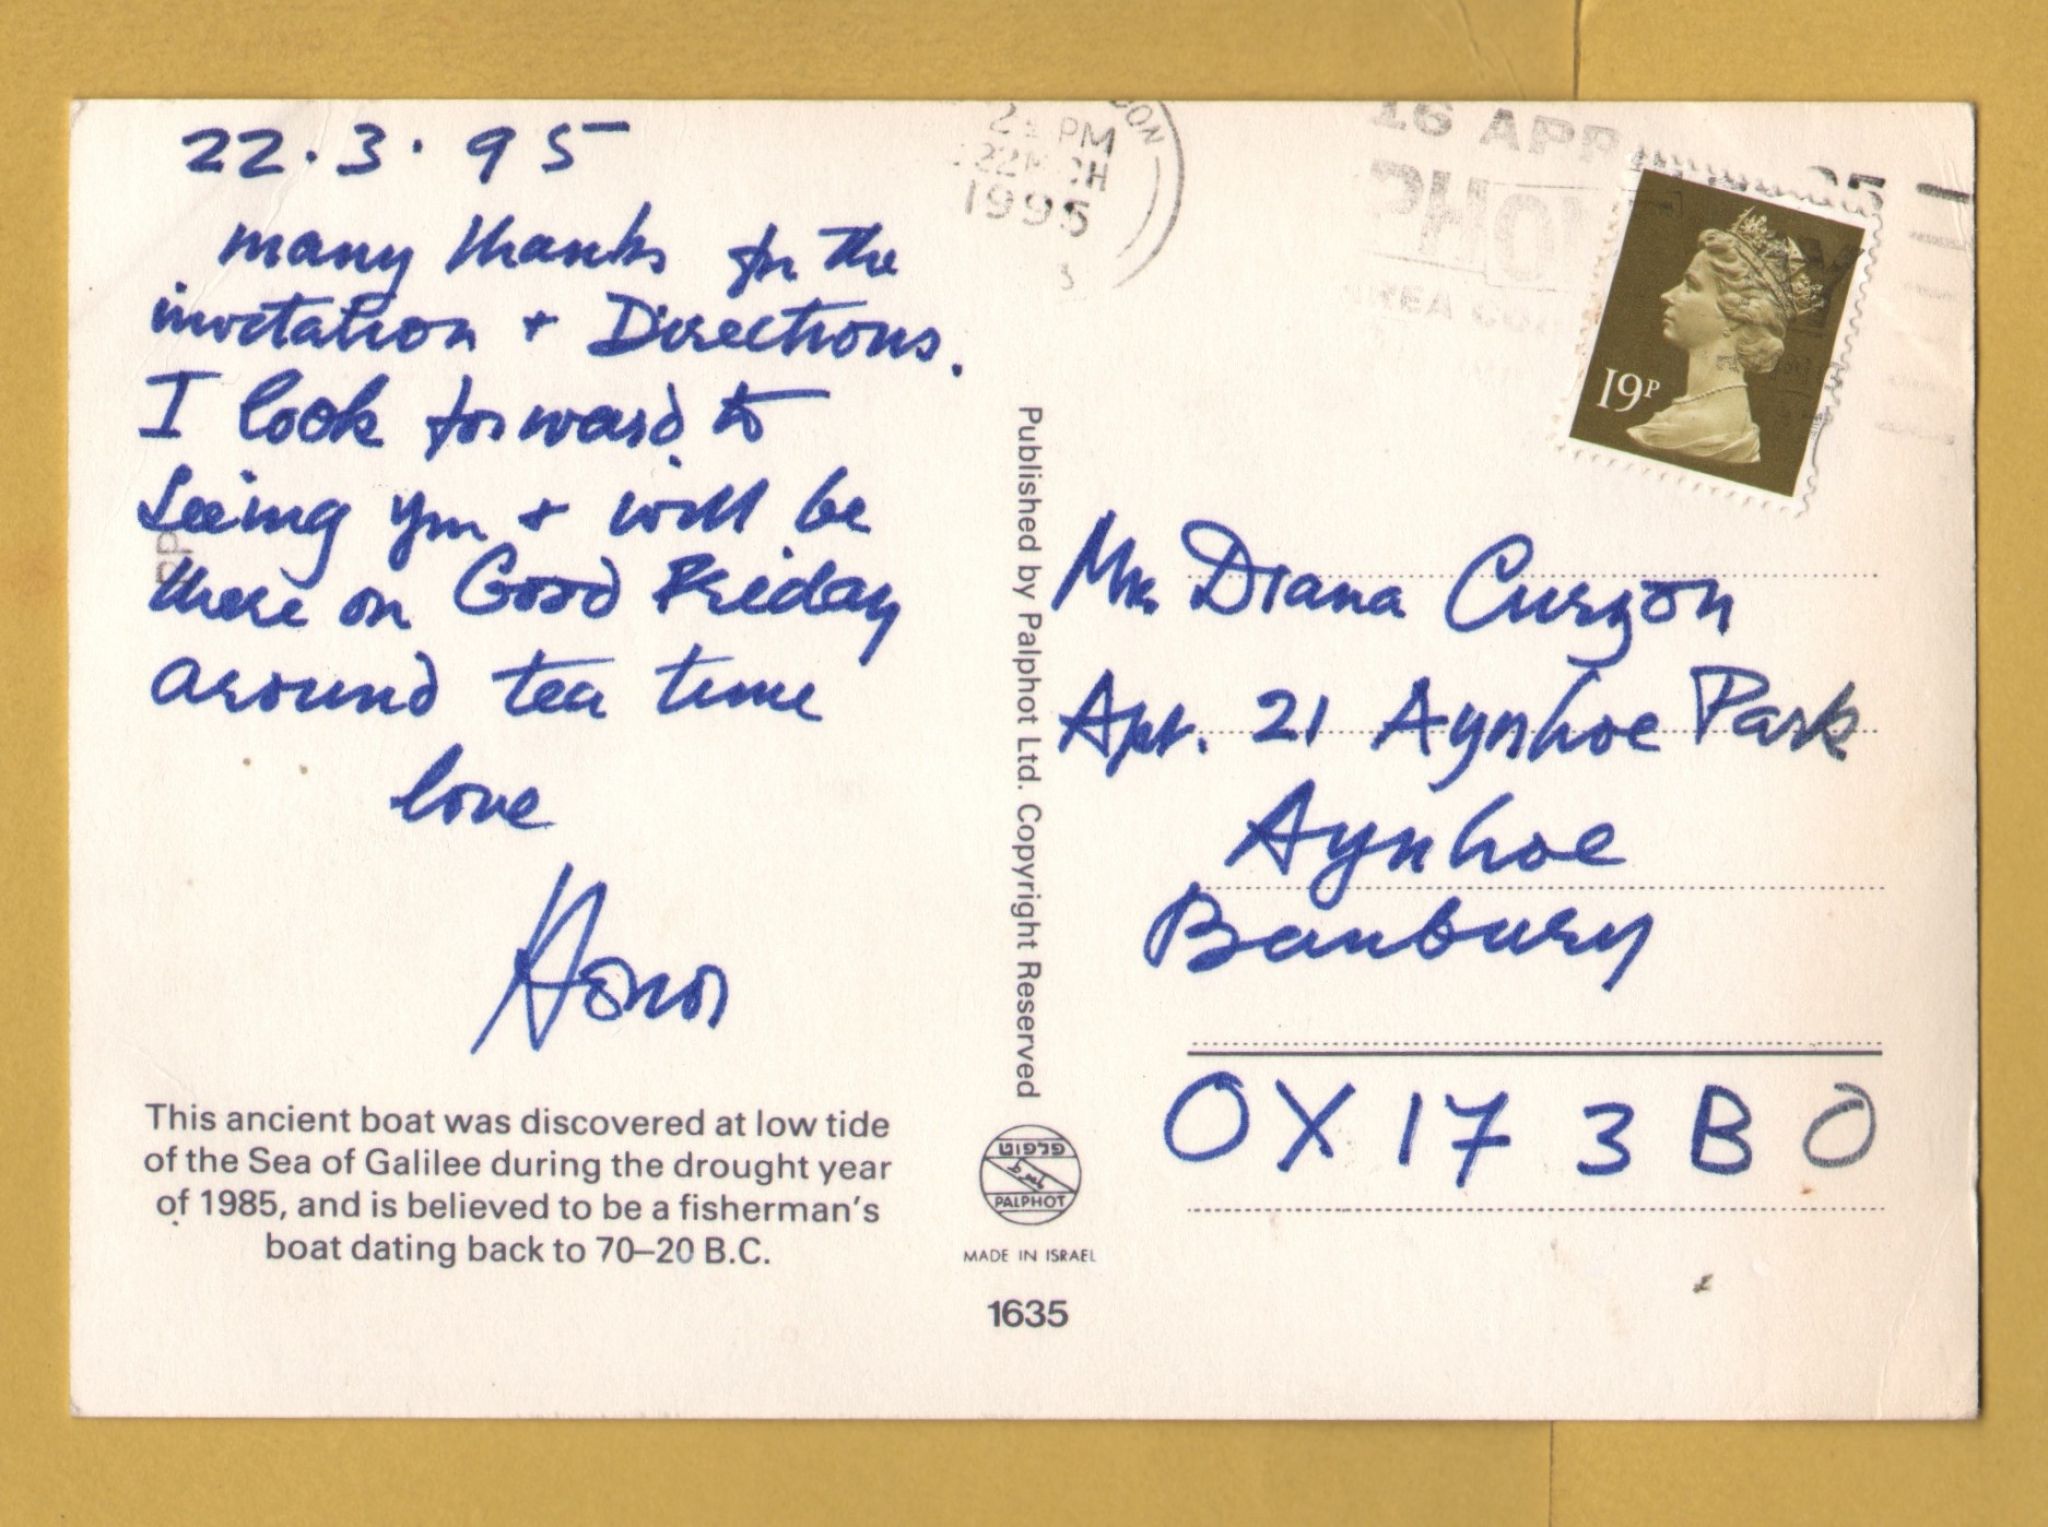 22.3.95
many thanks for the
invitation + Directions.
I look forward to
seeing you + will be
there on Good Friday
around tea time
love
Honor
This ancient boat was discovered at low tide
of the Sea of Galilee during the drought year
of 1985, and is believed to be a fisherman's
boat dating back to 70–20 B.C.
Published by Palphot Ltd. Copyright Reserved
פלפוט
PALPHOT
MADE IN ISRAEL
1635
PM
1995
16 APR
19P
Mrs Diana Curzon
Apt. 21 Aynhoe Park
Aynhoe
Banbury
OX17 3BO